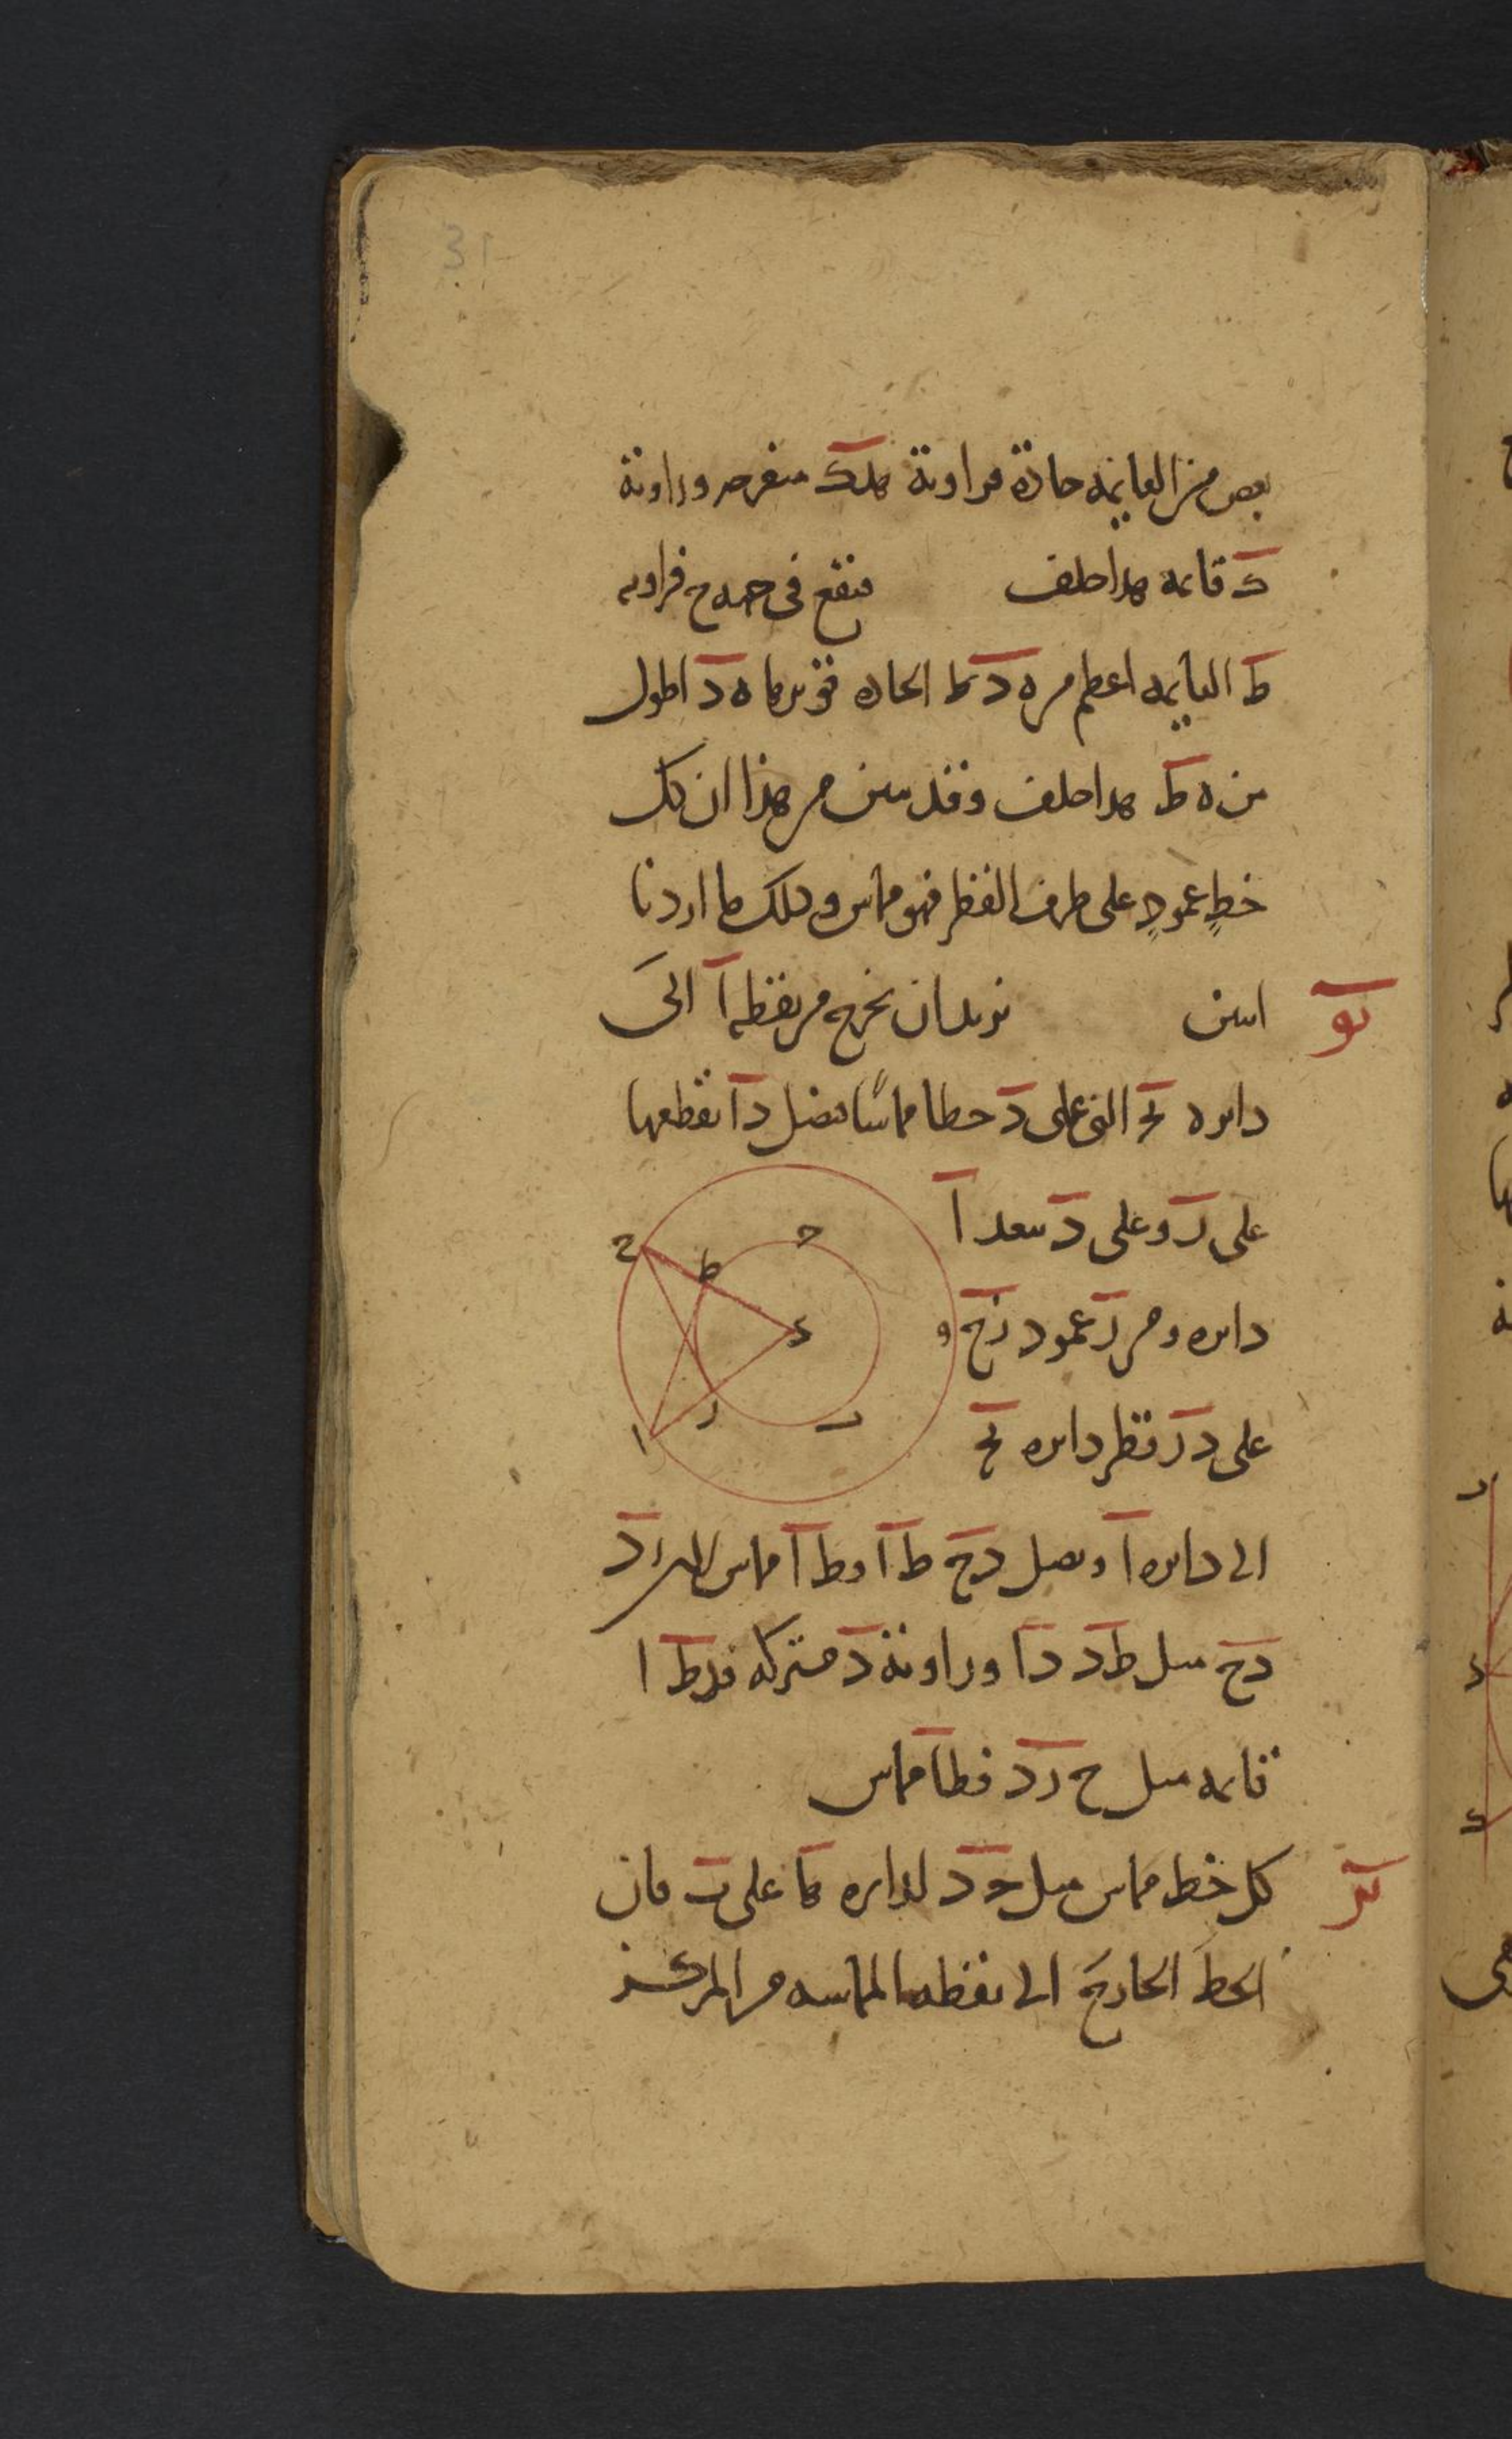 31
بعض من القايمه حادة فزاوية هدك منفرجه وزاوية
ك قايمه هذا خلف فيقع في جهه ح فزاويه
ط القايمه اعظم من ه د ط الحاده فوترها ه د اطول
من ه ط هذا خلف وقد تبين من هذا ان كل
خطٍ عمودٍ على طرف القطر فهو مماس وذلك ما اردنا
يو نريد ان نخرج من نقطه ا الى
دايره بج التي على د خطا مماسًا فنصل د ا يقطعها
على ر وعلى د ببعد ا
دايره ومن ر عمود رح و
على د ر قطر دايره بج
الى دايره ا ونصل دح ط ا وط ا مماس لان ر د
دح مثل ط د د ا وزاوية د مشتركه فدط ا
قايمه مثل ح ر د فطا مماس
يز كل خط مماس مثل جد لدايره ا على ب فان
الخط الخارج الى نقطه المماسه من المركز
ح
ط
ج
د
ر
ب
ا